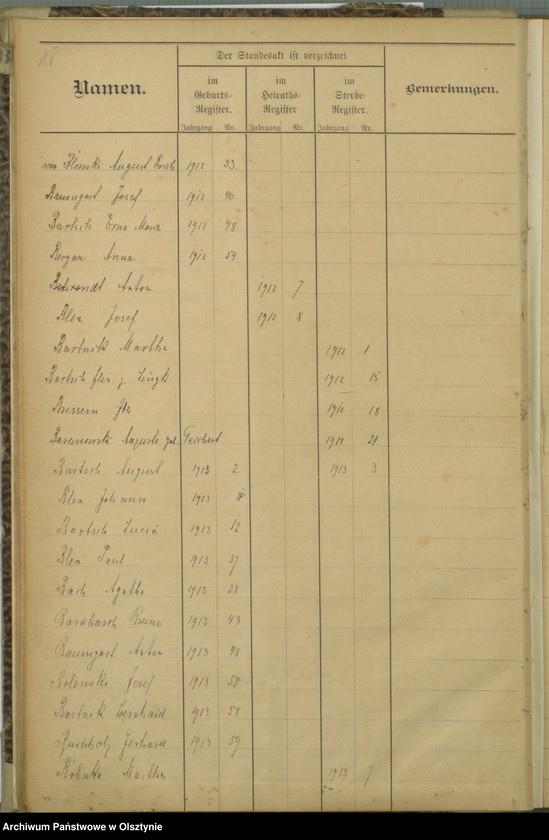 18
Der Standesakt ist verzeichnet
Namen.
im Geburts-Register.
im Heiraths-Register
im Sterbe-Register.
Bemerkungen.
Jahrgang Nr. Jahrgang Nr. Jahrgang Nr.
von August Erich 1912 33.
Baumgart Josef 1912 40.
Bartsch Erna Maria 1912 48.
Bergau Anna 1912 54.
Behrendt Anton 1912 7
Klea Josef 1912 8
Bartnik Martha 1912 1
Bartsch 1912 15
1912 18
Baranowski Auguste geb. Teichert 1912 21
Bartsch August 1913 2 1913 3
Johann 1913
Bartsch Lucia 1913 12
Paul 1913 37
Bach Agathe 1913 38
Bruno 1913 43
Baumgart Anton 1913 48
Josef 1913 50
Bartnik Bernhard 1913 58
Buchholz Gerhard 1913 59
Martha 1913 7
Archiwum Państwowe w Olsztynie